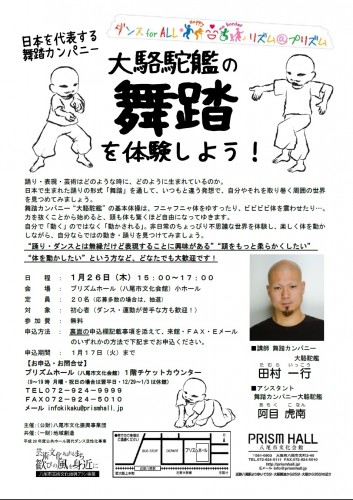 ダンス for ALL
リズム@プリズム
日本を代表する
舞踏カンパニー
大駱駝艦の
舞踏
を体験しよう！
踊り・表現・芸術はどのような時に、どのように生まれているのか。
日本で生まれた踊りの形式「舞踏」を通して、いつもと違う発想で、自分やそれを取り巻く周囲の世界
を見つめてみましょう。
舞踏カンパニー“大駱駝艦”の基本体操は、フニャフニャ体をゆすったり、ビビビビ体を震わせたり…。
力を抜くことから始めると、頭も体も驚くほど自由になってきます。
自分で「動く」のではなく「動かされる」。非日常のちょっぴり不思議な世界を体験し、楽しく体を動か
しながら、自分ならではの動き・踊りを見つけてみましょう。
“踊り・ダンスとは無縁だけど表現することに興味がある”“頭をもっと柔らかくしたい”
“体を動かしたい”という方など、どなたでも大歓迎です！
日程：1月26日（木）15：00～17：00
会場：プリズムホール（八尾市文化会館）小ホール
定員：20名（応募多数の場合は、抽選）
対象：初心者（ダンス・運動が苦手な方も歓迎！）
参加費：無料
申込方法：裏面の申込欄記載事項を添えて、来館・FAX・Eメール
のいずれかの方法で下記までお申込ください。
申込期間：1月17日（火）まで
【お申込・お問合せ】
プリズムホール（八尾市文化会館）1階チケットカウンター
（9～19時 月曜・祝日の場合は翌平日・12/29～1/3は休館）
TEL072-924-9999
FAX072-924-5010
メール infokikaku@prismhall.jp
主催：（公財）八尾市文化振興事業団
共催：（一財）地域創造
平成28年度公共ホール現代ダンス活性化事業
芸術文化のもたらす
歓びの風を身近に
■講師 舞踏カンパニー
大駱駝艦
たむら いっこう
田村 一行
■アシスタント
舞踏カンパニー大駱駝艦
あもく こなん
阿目 虎南
プリズムホール
PRISM HALL
八尾市文化会館
TEL.072-924-5111 FAX.072-924-5010
http://prismhall.jp